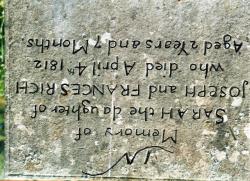 IN
Memory of
SARAH the daughter of
JOSEPH and FRANCES RICH
who died April 4th 1812
Aged 2 Years and 7 Months.